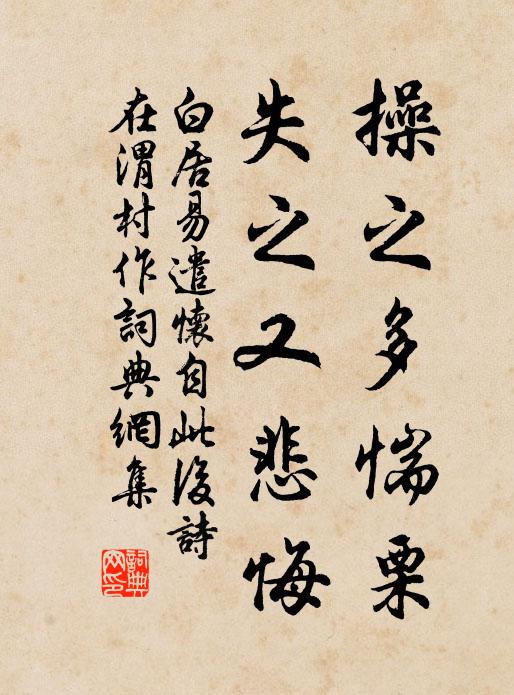 操之多惴栗
失之又悲悔
白居易遣懷自此後詩
在渭村作詞典網集
詞典網印